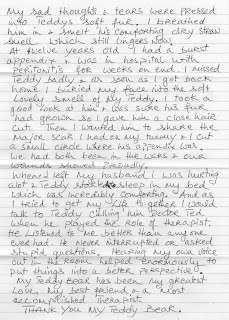 My sad thoughts & tears were pressed
into Teddys soft fur. I breathed
him in & smelt his comforting clay straw
smell which still lingers now.
At twelve years old I had a burst
appendix & was in hospital with
peritonitis for weeks on end. I missed
Teddy badly & as soon as I got back
home I buried my face into the soft
lovely smell of my Teddy. I took a
good look at him & was sure his fur
had grown so I gave him a close hair
cut. Then I wanted him to share the
major scar I had on my tummy & I cut
a small circle where his appendix was.
We had both been in the wars & our
wounds showed proudly.
When I left my husband I was hurting
alot & Teddy sleep in my bed
which was incredibly comforting. And as
I tried to get my life together I would
talk to Teddy calling him Doctor Ted
when he played the role of therapist.
He listened to me better than any one
ever had. He never interrupted or asked
stupid questions. Hearing my own voice
out in the room helped enormously to
put things into a better perspective.
My Teddy Bear has been my greatest
love, my best friend & a most
accomplished therapist.
THANK YOU MY TEDDY BEAR.